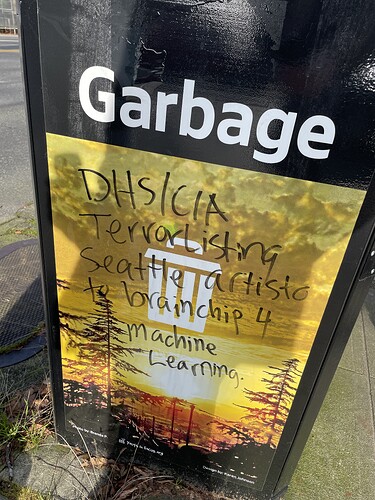 Garbage
DHS/CIA
Terrorlisting
Seattle artists
to brainchip 4
machine
Learning.